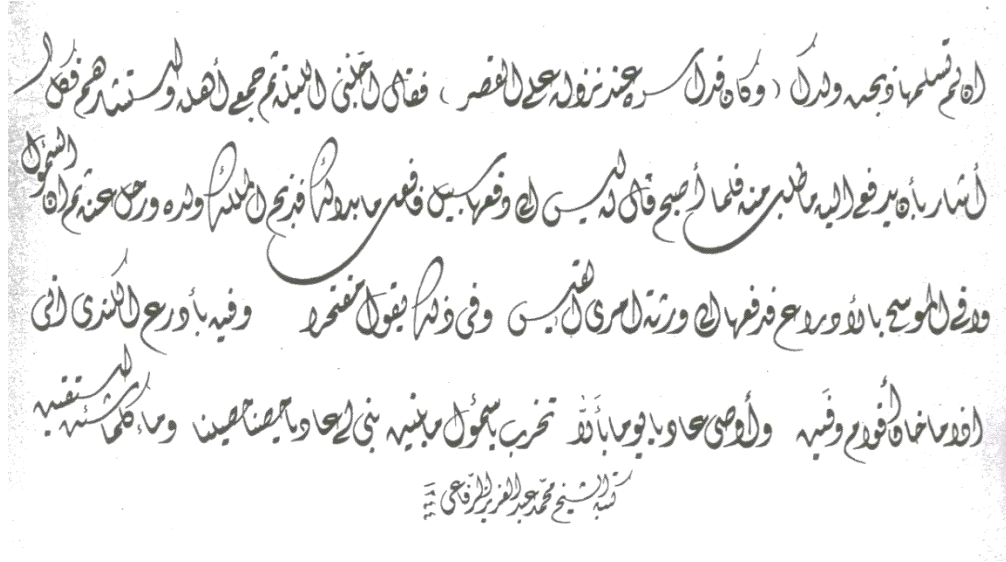 ان لم تسلمها ذبحت ولدك (وكان قد أسر عند نزوله على القصر) فقال اجلنى الليلة ثم جمع أهله واستشارهم فكل
أشار بأن يدفع اليه ما طلب منه فلما أصبح قال له ليس الى دفعها سبيل فافعل ما بدا لك فذبح الملك ولده ورحل عنه ثم ان السموأل
وافى الموسم بالأدراع فدفعها الى ورثة امرئ القيس وفى ذلك يقول مفتخرا وفيت بأدرع الكندى انى
اذا ما خان أقوام وفيت وأوصى عاديا يوما بألا تخرب يا سموأل ما بنيت بنى لى عاديا حصنا حصينا وماء كلما شئت استقيت
كتبه الشيخ محمد عبد العزيز الرفاعى